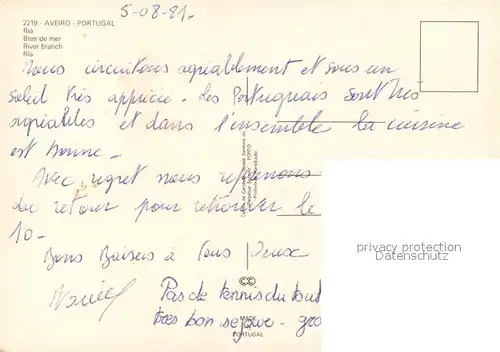 5-08-81.
2219 - AVEIRO - PORTUGAL
Ria
Bras de mer
River branch
Ría
Nous circuitons agréablement et sous un
soleil très apprécié. Les Portugais sont très
agréables et dans l'ensemble la cuisine
est bonne.
Avec regret nous
du retour pour retrouver le
10-
Bons Baisers à Tous Deux
Pas de tennis du tout
très bon séjour.
privacy protection
Datenschutz
MADE
PORTUGAL